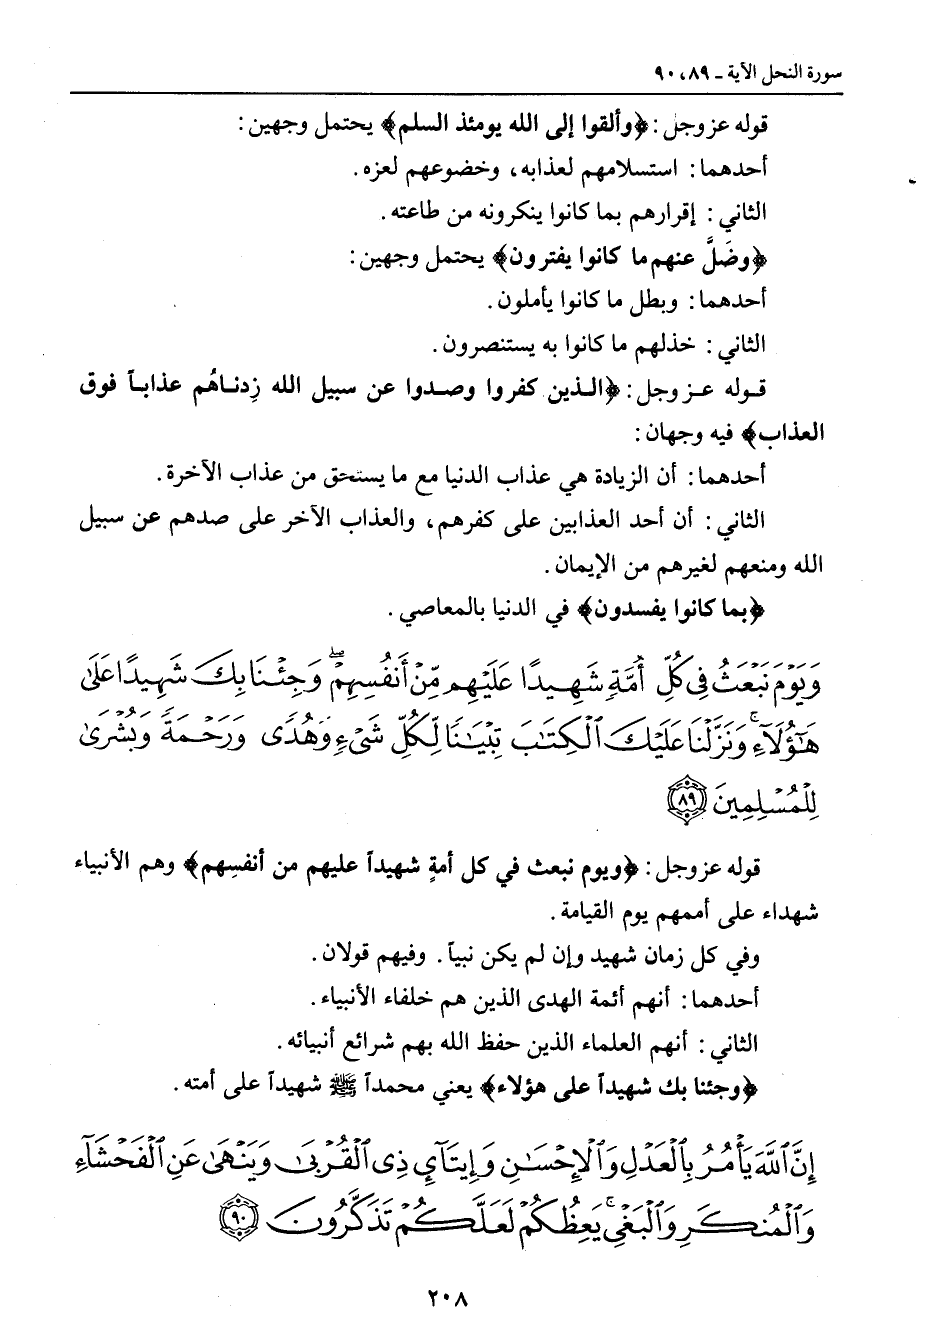 سورة النحل الآية ـ ٨٩، ٩٠
قوله عز وجل : ﴿وألقوا إلى الله يومئذ السلم﴾ يحتمل وجهين :
أحدهما : استسلامهم لعذابه، وخضوعهم لعزه .
الثاني : إقرارهم بما كانوا ينكرونه من طاعته .
﴿وضَلَّ عنهم ما كانوا يفترون﴾ يحتمل وجهين :
أحدهما : وبطل ما كانوا يأملون .
الثاني : خذلهم ما كانوا به يستنصرون .
قوله عز وجل : ﴿الذين كفروا وصدوا عن سبيل الله زِدناهُم عذاباً فوق
العذاب﴾ فيه وجهان :
أحدهما : أن الزيادة هي عذاب الدنيا مع ما يستحق من عذاب الآخرة .
الثاني : أن أحد العذابين على كفرهم، والعذاب الآخر على صدهم عن سبيل
الله ومنعهم لغيرهم من الإيمان .
﴿بما كانوا يفسدون﴾ في الدنيا بالمعاصي .
وَيَوْمَ نَبْعَثُ فِي كُلِّ أُمَّةٍ شَهِيدًا عَلَيْهِم مِّنْ أَنفُسِهِمْ ۖ وَجِئْنَا بِكَ شَهِيدًا عَلَىٰ
هَٰٓؤُلَآءِ ۚ وَنَزَّلْنَا عَلَيْكَ ٱلْكِتَٰبَ تِبْيَٰنًا لِّكُلِّ شَىْءٍ وَهُدًى وَرَحْمَةً وَبُشْرَىٰ
لِلْمُسْلِمِينَ ٨٩
قوله عز وجل : ﴿ويوم نبعث في كل أمةٍ شهيداً عليهم من أنفسِهم﴾ وهم الأنبياء
شهداء على أممهم يوم القيامة .
وفي كل زمان شهيد وإن لم يكن نبياً . وفيهم قولان .
أحدهما : أنهم أئمة الهدى الذين هم خلفاء الأنبياء .
الثاني : أنهم العلماء الذين حفظ الله بهم شرائع أنبيائه .
﴿وجئنا بك شهيداً على هؤلاء﴾ يعني محمداً ﷺ شهيداً على أمته .
إِنَّ ٱللَّهَ يَأْمُرُ بِٱلْعَدْلِ وَٱلْإِحْسَٰنِ وَإِيتَآىِٕ ذِى ٱلْقُرْبَىٰ وَيَنْهَىٰ عَنِ ٱلْفَحْشَآءِ
وَٱلْمُنكَرِ وَٱلْبَغْىِ ۚ يَعِظُكُمْ لَعَلَّكُمْ تَذَكَّرُونَ ٩٠
٢٠٨